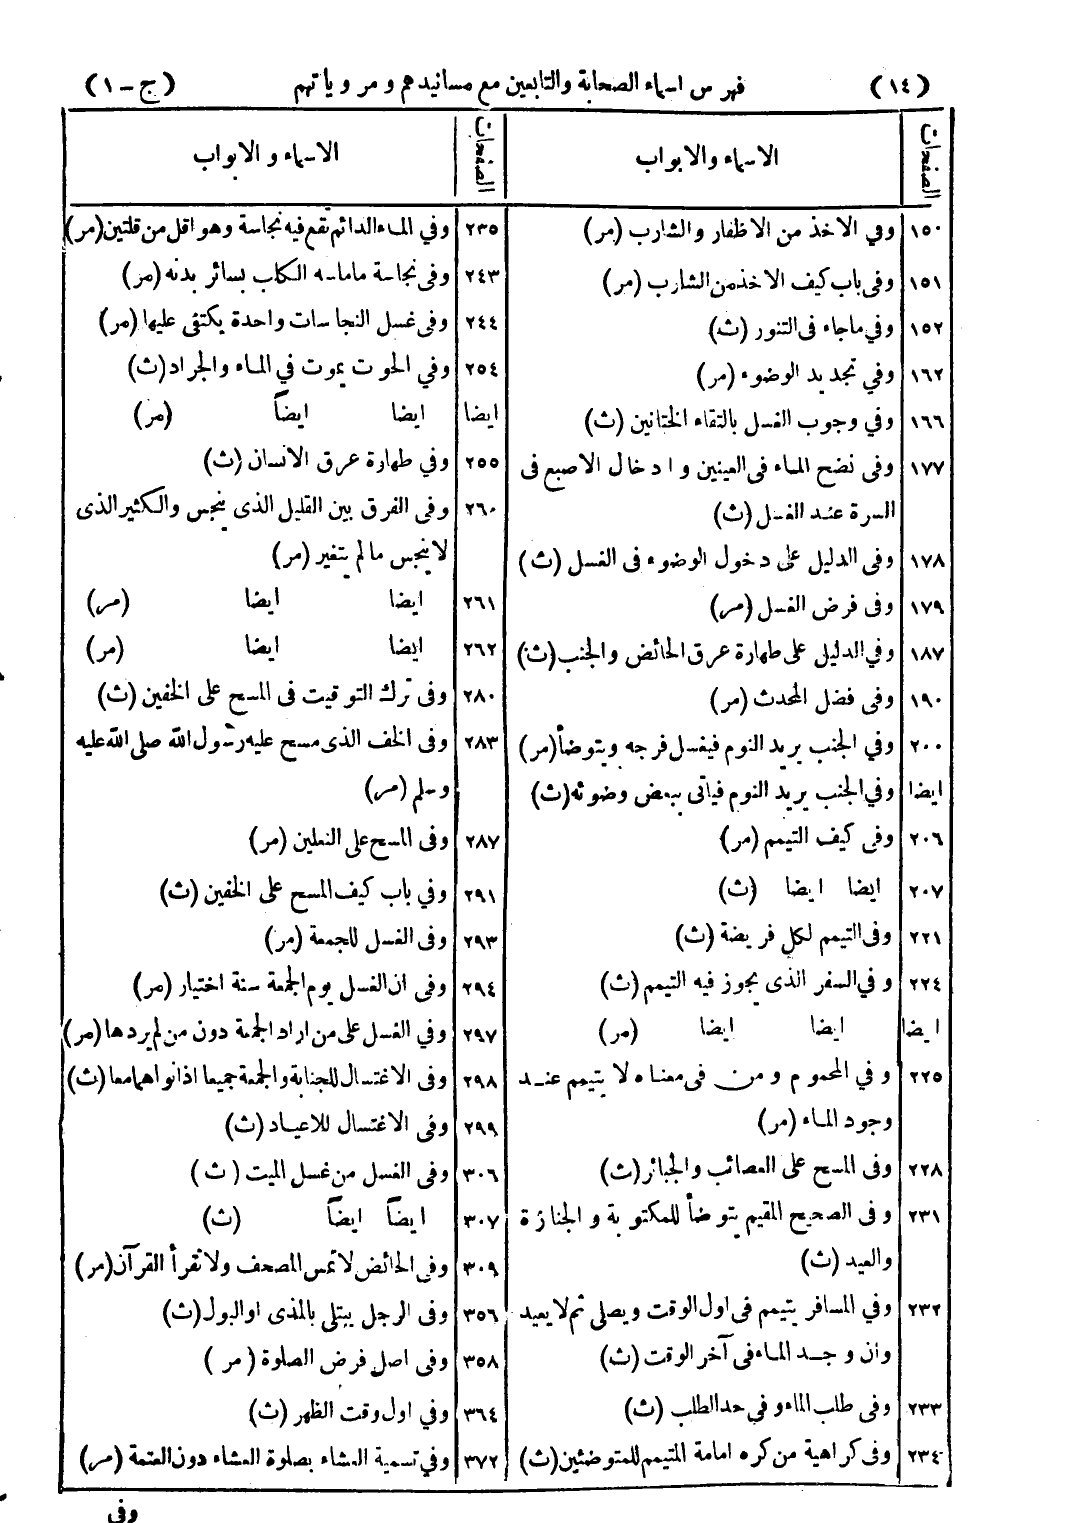 (١٤) فهرس اسماء الصحابة والتابعين مع مسانيدهم ومروياتهم (ج-١)
الصفحات الاسماء والابواب
١٥٠ وفي الاخذ من الاظفار والشارب (مر)
١٥١ وفى باب كيف الاخذ من الشارب (مر)
١٥٢ وفي ماجاء فى التنور (ث)
١٦٢ وفي تجديد الوضوء (مر)
١٦٦ وفي وجوب الغسل بالتقاء الختانين (ث)
١٧٧ وفى نضح الماء فى العينين وادخال الاصبع فى
السرة عند الغسل (ث)
١٧٨ وفى الدليل على دخول الوضوء فى الغسل (ث)
١٧٩ وفى فرض الغسل (مر)
١٨٧ وفي الدليل على طهارة عرق الحائض والجنب (ث)
١٩٠ وفى فضل المحدث (مر)
٢٠٠ وفي الجنب يريد النوم فيغسل فرجه ويتوضأ (مر)
ايضا وفي الجنب يريد النوم فياتى ببعض وضوئه (ث)
٢٠٦ وفى كيف التيمم (مر)
٢٠٧ ايضا ايضا (ث)
٢٢١ وفى التيمم لكل فريضة (ث)
٢٢٤ وفي السفر الذى يجوز فيه التيمم (ث)
ايضا ايضا ايضا (مر)
٢٢٥ وفي المحموم ومن فى معناه لا يتيمم عند
وجود الماء (مر)
٢٢٨ وفى المسح على العصائب والجبائر (ث)
٢٣١ وفى الصحيح المقيم يتوضأ للمكتوبة والجنازة
والعيد (ث)
٢٣٢ وفي المسافر يتيمم فى اول الوقت ويصلى ثم لا يعيد
وان وجد الماء فى آخر الوقت (ث)
٢٣٣ وفى طلب الماء وفى حد الطلب (ث)
٢٣٤ وفى كراهية من كره امامة المتيمم للمتوضئين (ث)
الصفحات الاسماء والابواب
٢٣٥ وفي الماء الدائم تقع فيه نجاسة وهو اقل من قلتين (مر)
٢٤٣ وفى نجاسة ماماسه الكلب بسائر بدنه (مر)
٢٤٤ وفى غسل النجاسات واحدة يكتفى عليها (مر)
٢٥٤ وفي الحوت يموت في الماء والجراد (ث)
ايضا ايضا ايضاً (مر)
٢٥٥ وفي طهارة عرق الانسان (ث)
٢٦٠ وفى الفرق بين القليل الذى ينجس والكثير الذى
لا ينجس مالم يتغير (مر)
٢٦١ ايضا ايضا (مر)
٢٦٢ ايضا ايضا (مر)
٢٨٠ وفى ترك التوقيت فى المسح على الخفين (ث)
٢٨٣ وفى الخف الذى مسح عليه رسول الله صلى الله عليه
وسلم (مر)
٢٨٧ وفى المسح على النعلين (مر)
٢٩١ وفي باب كيف المسح على الخفين (ث)
٢٩٣ وفى الغسل للجمعة (مر)
٢٩٤ وفى ان الغسل يوم الجمعة سنة اختيار (مر)
٢٩٧ وفي الغسل على من اراد الجمعة دون من لم يردها (مر)
٢٩٨ وفى الاغتسال للجنابة والجمعة جميعا اذا نواهما معا (ث)
٢٩٩ وفى الاغتسال للاعياد (ث)
٣٠٦ وفى الغسل من غسل الميت (ث)
٣٠٧ ايضاً ايضاً (ث)
٣٠٩ وفى الحائض لا تمس المصحف ولا تقرأ القرآن (مر)
٣٥٦ وفى الرجل يبتلى بالمذى او البول (ث)
٣٥٨ وفى اصل فرض الصلوة (مر)
٣٦٤ وفي اول وقت الظهر (ث)
٣٧٢ وفي تسمية العشاء بصلوة العشاء دون العتمة (مر)
وفى